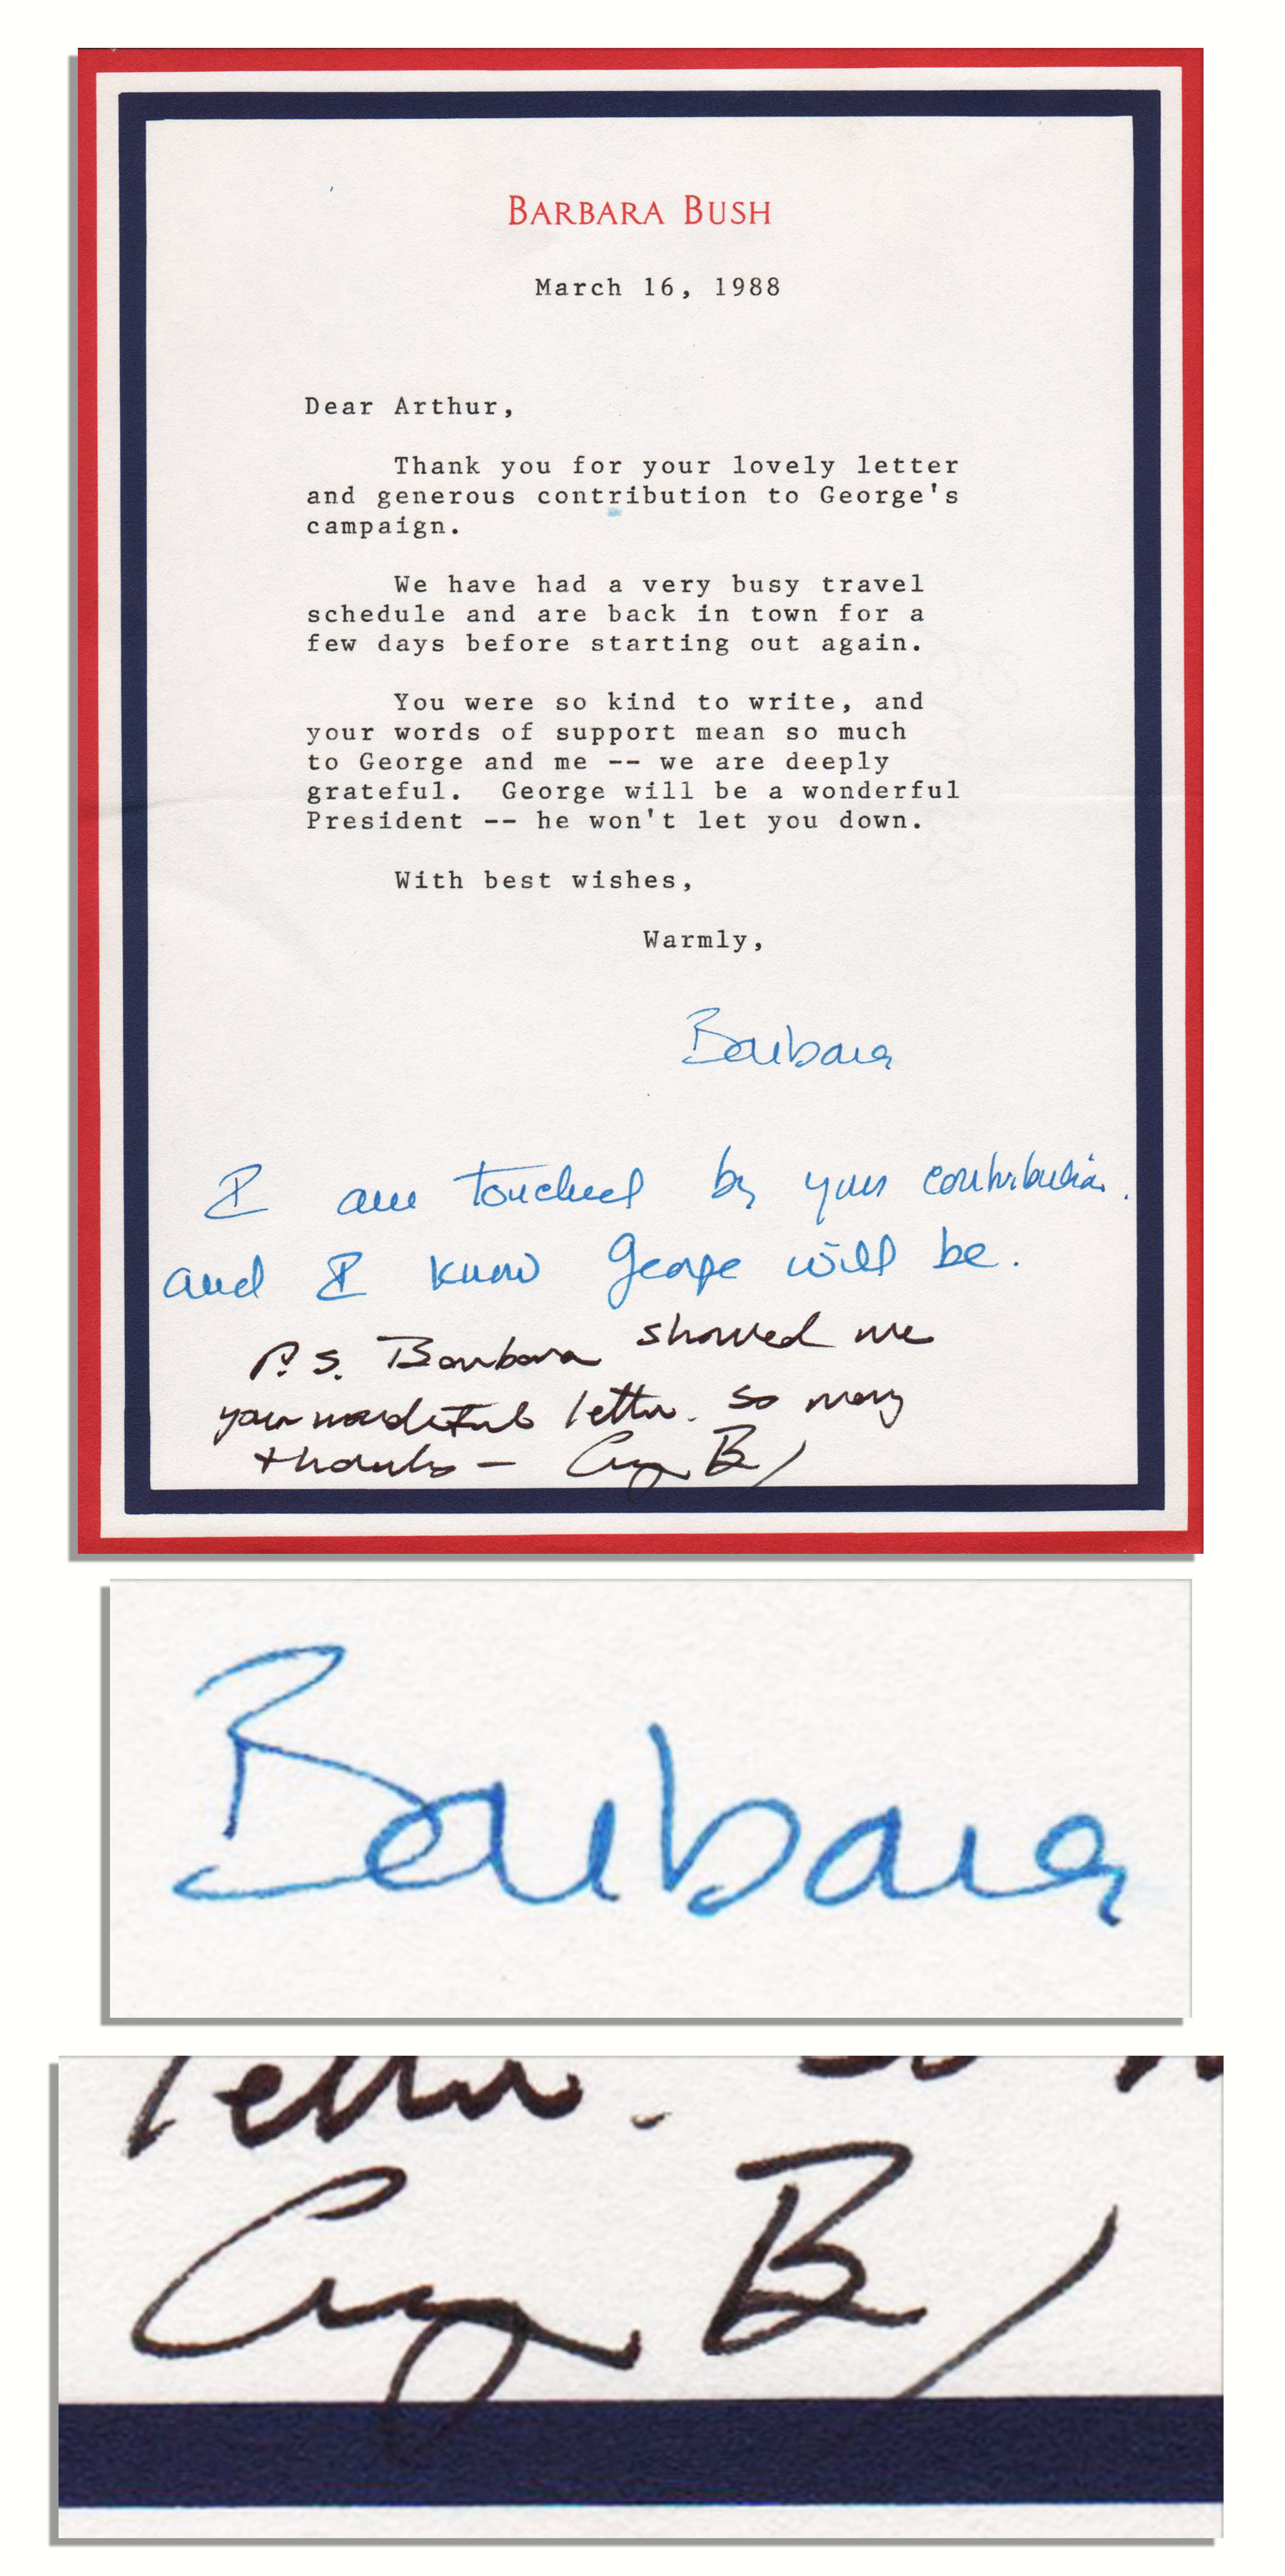 BARBARA BUSH
March 16, 1988
Dear Arthur,
Thank you for your lovely letter
and generous contribution to George's
campaign.
We have had a very busy travel
schedule and are back in town for a
few days before starting out again.
You were so kind to write, and
your words of support mean so much
to George and me -- we are deeply
grateful. George will be a wonderful
President -- he won't let you down.
With best wishes,
Warmly,
Barbara
I am touched by your contribution.
and I know George will be.
P.S. Barbara showed me
your wonderful letter. So many
thanks - George B
Barbara
letter. So m
George B